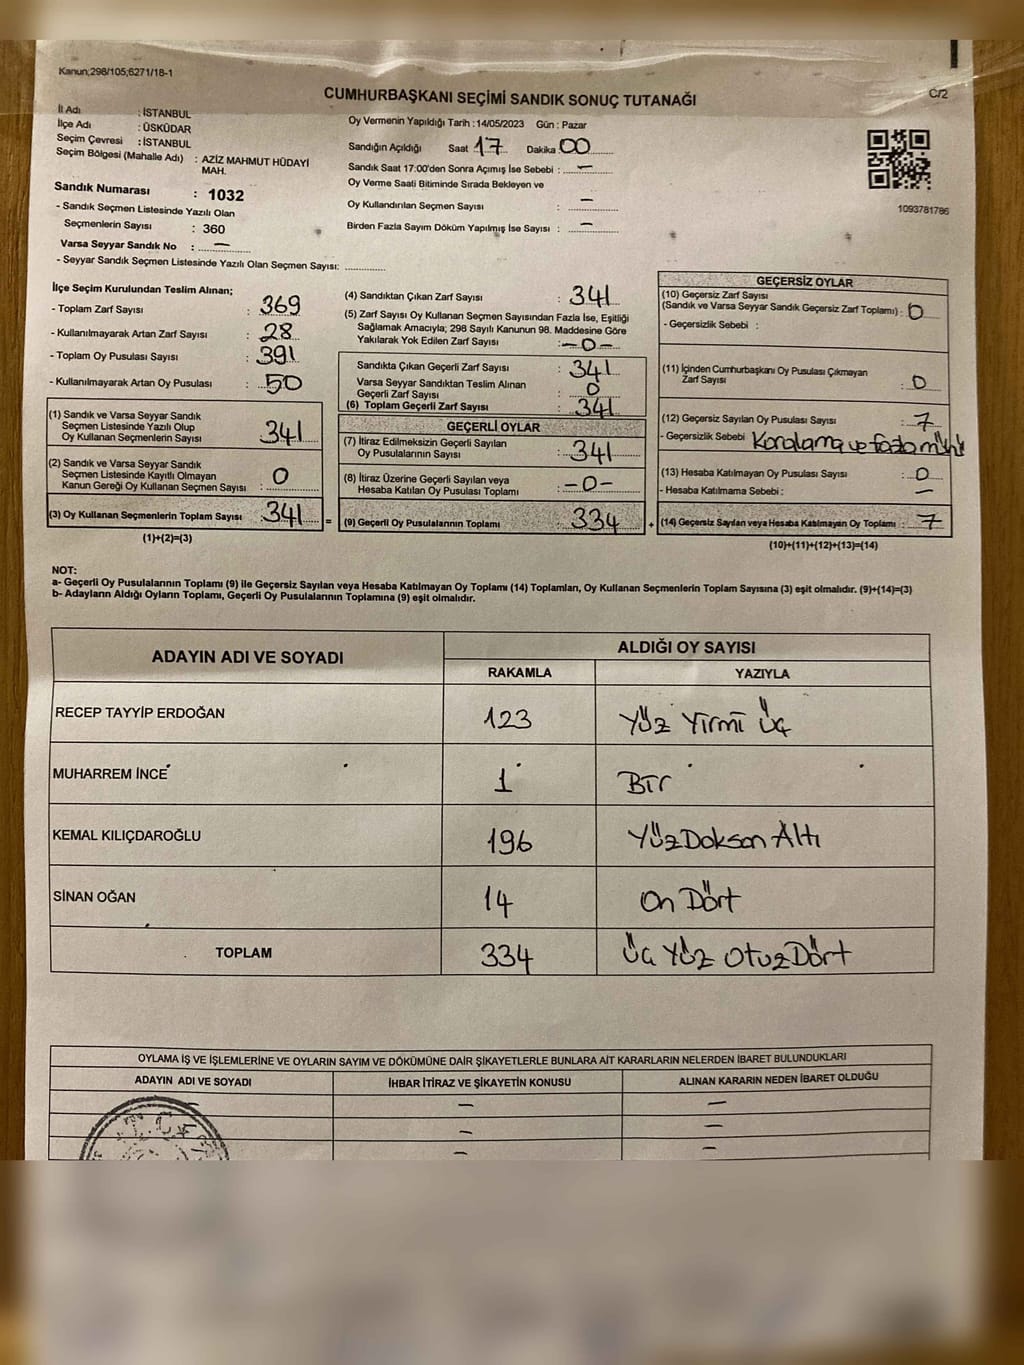 Kanun;298/105;6271/18-1
C/2
CUMHURBAŞKANI SEÇİMİ SANDIK SONUÇ TUTANAĞI
İl Adı : İSTANBUL
İlçe Adı : ÜSKÜDAR
Seçim Çevresi : İSTANBUL
Seçim Bölgesi (Mahalle Adı) : AZİZ MAHMUT HÜDAYİ
MAH.
Sandık Numarası : 1032
- Sandık Seçmen Listesinde Yazılı Olan
Seçmenlerin Sayısı : 360
Varsa Seyyar Sandık No : —
- Seyyar Sandık Seçmen Listesinde Yazılı Olan Seçmen Sayısı: ............
Oy Vermenin Yapıldığı Tarih : 14/05/2023 Gün : Pazar
Sandığın Açıldığı Saat 17 Dakika 00
Sandık Saat 17:00'den Sonra Açımış İse Sebebi : —
Oy Verme Saati Bitiminde Sırada Bekleyen ve
Oy Kullandırılan Seçmen Sayısı : —
Birden Fazla Sayım Döküm Yapılmış İse Sayısı : —
1093781786
İlçe Seçim Kurulundan Teslim Alınan;
- Toplam Zarf Sayısı : 369
- Kullanılmayarak Artan Zarf Sayısı : 28
- Toplam Oy Pusulası Sayısı : 391
- Kullanılmayarak Artan Oy Pusulası : 50
(1) Sandık ve Varsa Seyyar Sandık
Seçmen Listesinde Yazılı Olup
Oy Kullanan Seçmenlerin Sayısı : 341
(2) Sandık ve Varsa Seyyar Sandık
Seçmen Listesinde Kayıtlı Olmayan
Kanun Gereği Oy Kullanan Seçmen Sayısı : 0
(3) Oy Kullanan Seçmenlerin Toplam Sayısı : 341 =
(1)+(2)=(3)
(4) Sandıktan Çıkan Zarf Sayısı : 341
(5) Zarf Sayısı Oy Kullanan Seçmen Sayısından Fazla İse, Eşitliği
Sağlamak Amacıyla; 298 Sayılı Kanunun 98. Maddesine Göre
Yakılarak Yok Edilen Zarf Sayısı : —0—
Sandıkta Çıkan Geçerli Zarf Sayısı : 341
Varsa Seyyar Sandıktan Teslim Alınan
Geçerli Zarf Sayısı : 0
(6) Toplam Geçerli Zarf Sayısı : 341
GEÇERLİ OYLAR
(7) İtiraz Edilmeksizin Geçerli Sayılan
Oy Pusulalarının Sayısı : 341
(8) İtiraz Üzerine Geçerli Sayılan veya
Hesaba Katılan Oy Pusulası Toplamı : —0—
(9) Geçerli Oy Pusulalarının Toplamı : 334 +
GEÇERSİZ OYLAR
(10) Geçersiz Zarf Sayısı
(Sandık ve Varsa Seyyar Sandık Geçersiz Zarf Toplamı) : 0
- Geçersizlik Sebebi :
(11) İçinden Cumhurbaşkanı Oy Pusulası Çıkmayan
Zarf Sayısı : 0
(12) Geçersiz Sayılan Oy Pusulası Sayısı : 7
- Geçersizlik Sebebi Karalama ve fazla mühür
(13) Hesaba Katılmayan Oy Pusulası Sayısı : 0
- Hesaba Katılmama Sebebi : —
(14) Geçersiz Sayılan veya Hesaba Katılmayan Oy Toplamı : 7
(10)+(11)+(12)+(13)=(14)
NOT:
a- Geçerli Oy Pusulalarının Toplamı (9) ile Geçersiz Sayılan veya Hesaba Katılmayan Oy Toplamı (14) Toplamları, Oy Kullanan Seçmenlerin Toplam Sayısına (3) eşit olmalıdır. (9)+(14)=(3)
b- Adayların Aldığı Oyların Toplamı, Geçerli Oy Pusulalarının Toplamına (9) eşit olmalıdır.
ADAYIN ADI VE SOYADI
ALDIĞI OY SAYISI
RAKAMLA YAZIYLA
RECEP TAYYİP ERDOĞAN 123 Yüz Yirmi Üç
MUHARREM İNCE 1 Bir
KEMAL KILIÇDAROĞLU 196 YüzDoksan Altı
SİNAN OĞAN 14 On Dört
TOPLAM 334 Üç Yüz OtuzDört
OYLAMA İŞ VE İŞLEMLERİNE VE OYLARIN SAYIM VE DÖKÜMÜNE DAİR ŞİKAYETLERLE BUNLARA AİT KARARLARIN NELERDEN İBARET BULUNDUKLARI
ADAYIN ADI VE SOYADI İHBAR İTİRAZ VE ŞİKAYETİN KONUSU ALINAN KARARIN NEDEN İBARET OLDUĞU
— — —
— —
— —
T.C.